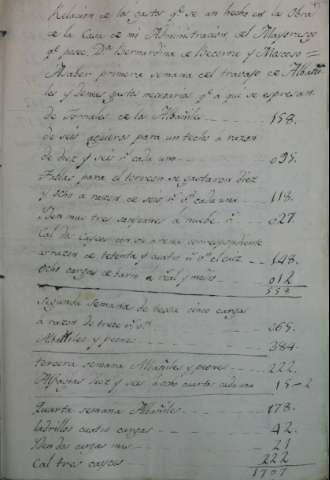 Relación de los gastos q.e se an hecho en la Obra
de la Casa de mi Administración, del Mayorazgo
q.e posee D.a Bernardina de Becerra y Moscoso =
Asaber primera semana del trabajo de Albañi
les y demas gastos menores q.e a que se espresan
de Jornales de los Albañiles 158.
de seis para un techo a razon
de diez y seis r.s cada uno 095.
Tablas para el torreon se gastaron diez
y ocho a razon de seis r.s cada una 118.
Iden mas tres a nuebe r.s 027
Cal dos cayces con su arena correspondiente
a razon de setenta y cuatro r.s el caiz 148.
Ocho cargas de a real y medio 012
558
Segunda Semana de teja cinco cargas
a razon de trece r.s 065.
Albañiles y peones 384
tercera semana Albañiles y peones 222.
Alfagias diez y seis a ocho cuartos cada una 15-2
Quarta semana Albañiles 178.
ladrillos cuatro cargas 42.
Iden dos cargas mas 21
Cal tres cayces 222
1707